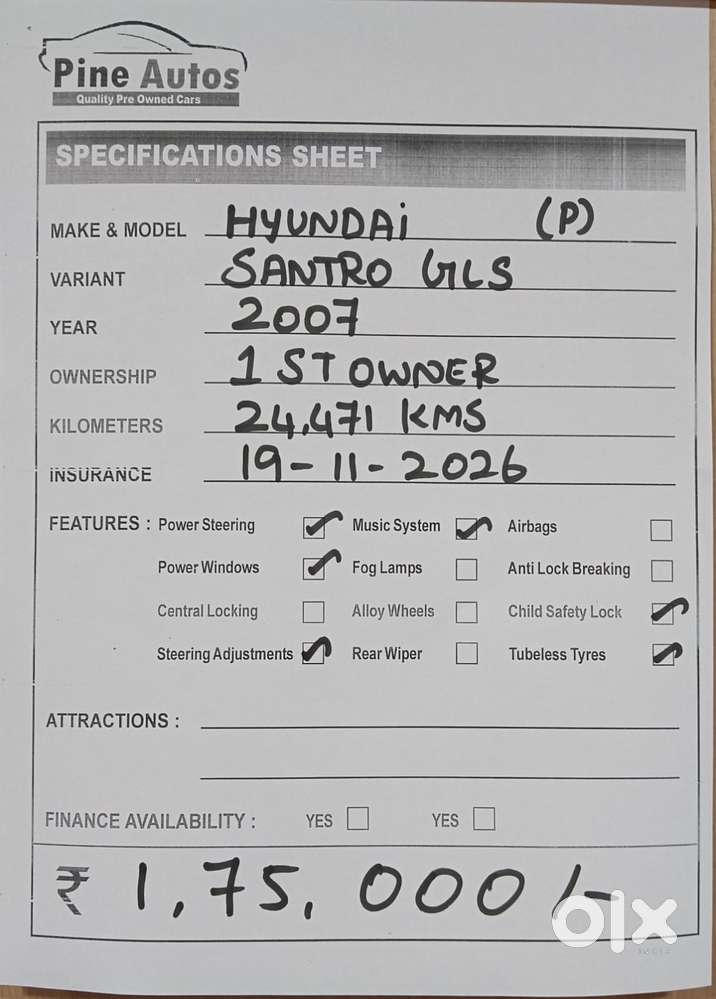 Pine Autos
Quality Pre Owned Cars
SPECIFICATIONS SHEET
MAKE & MODEL HYUNDAi (P)
VARIANT SANTRO GLS
YEAR 2007
OWNERSHIP 1 ST OWNER
KILOMETERS 24,471 KMS
INSURANCE 19-11-2026
FEATURES : Power Steering Music System Airbags
Power Windows Fog Lamps Anti Lock Breaking
Central Locking Alloy Wheels Child Safety Lock
Steering Adjustments Rear Wiper Tubeless Tyres
ATTRACTIONS :
FINANCE AVAILABILITY : YES YES
₹ 1,75,000/-
olx